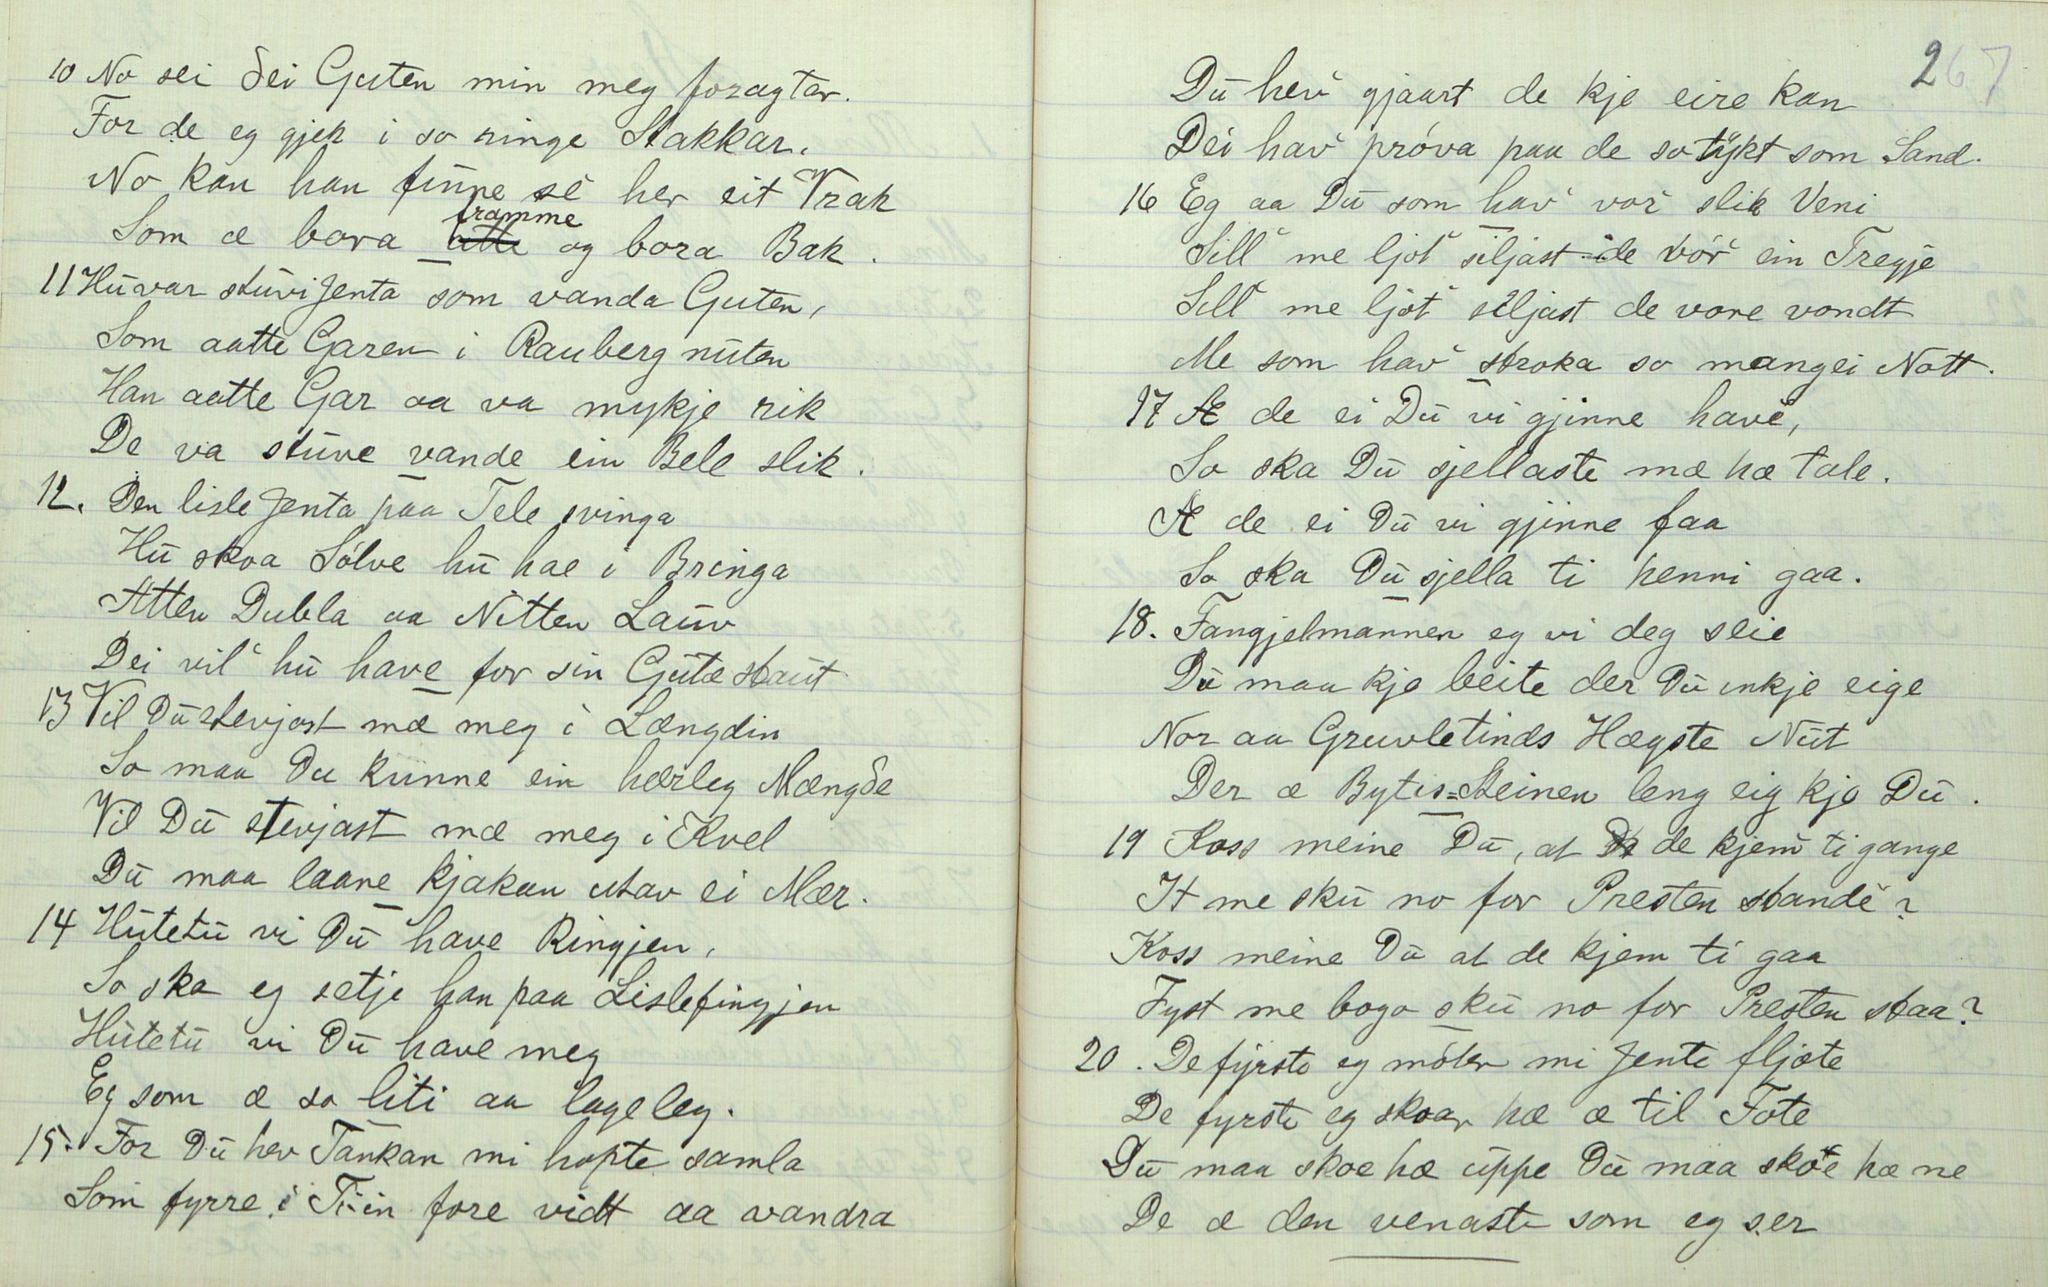 10 No sei dei Guten min meg foragtar.
For de eg gjek i so ringe Stakkar.
No kan han finne sé her eit Vrak
Som æ bara framme og bara Bak.
11 Hu var stuvi Jenta som vanda Guten,
Som aatte Garen i Rauberg nuten
Han aatte Gar aa va mykje rik
De va stuve vande ein Bele slik.
12. Den lisle Jenta paa Tele svinga
Hu skoa Sólve hu hae i Bringa
Atten Dubla aa Nitten Lauv
Dei vil hu have for sin Gutæ staut
13 Vil Du stevjast mæ meg i Længdin
So maa Du kunne ein hærleg Mængde
Vil Du stevjast mæ meg i Kvel
Du maa laane kjakan utav ei Mær.
14 Hutetu vi Du have Ringjen,
So ska eg setje han paa Lislefingjen
Hutetu vi Du have meg
Eg som æ so liti aa lageleg.
15. For Du hev Tankan mi hopte samla
Som fyrre i Ti-in fore vidt aa vandra
267
Du hev gjaart de kje eire kan
Dei hav próva paa de so tykt som Sand.
16 Eg aa Du som hav vor slik Veni
Sill me ljot siljast de vór ein Tregje
Sill me ljot siljast de vore vondt
Me som hav stroka so mangei Nott.
17 Æ de ei Du vi gjinne have,
So ska Du sjellaste mæ hæ tale.
Æ de ei Du vi gjinne faa
So ska Du sjella ti henni gaa.
18. Fangjelmannen eg vi deg seie
Du maa kje beite der Du inkje eige
Nor aa Gruvletinds Hægste Nut
Der æ Bytis=Steinen leng eig kje Du.
19 Koss meine Du, at de kjem ti gange
It me sku no for Presten stande?
Koss meine Du at de kjem ti gaa
Fyst me bogo sku no for Presten staa?
20. De fyrste eg móter mi Jente fljote
De fyrste eg skoar hæ æ til Fote
Du maa skoe hæ uppe Du maa skoe hæ ne
De æ den venaste som eg ser